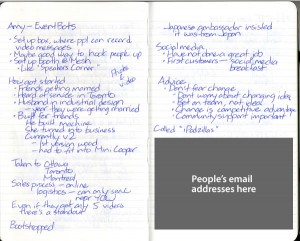 Amy - EventBots
• Set up box, where ppl can record
video messages
• Maybe good way to hook people up
• Set up booth @ Mesh
- Like "Speakers Corner"
Photo
+
video
How got started
• Friends getting married
• Heard of service in Toronto
• Husband in industrial design
- year they were getting married
• Built for friends
• He built machine
• She turned into business
• Currently v.2
- 1st version wood
- had to fit into Mini Cooper
Taken to Ottawa
Toronto
Montreal
Sales process - online
logistics - can only send
near YOW
Even if they get only 5 videos
there's a standout
Bootstrapped
Japanese ambassador insisted
it was from Japan
Social media
• Have not done a great job
• First customers - social media
breakfast
Advice
• Don't fear change
• Don't worry about changing idea
• Bet on team, not idea
• Change is competitive advantage
• Community support important
Called "Pedzillas"
People's email
addresses here